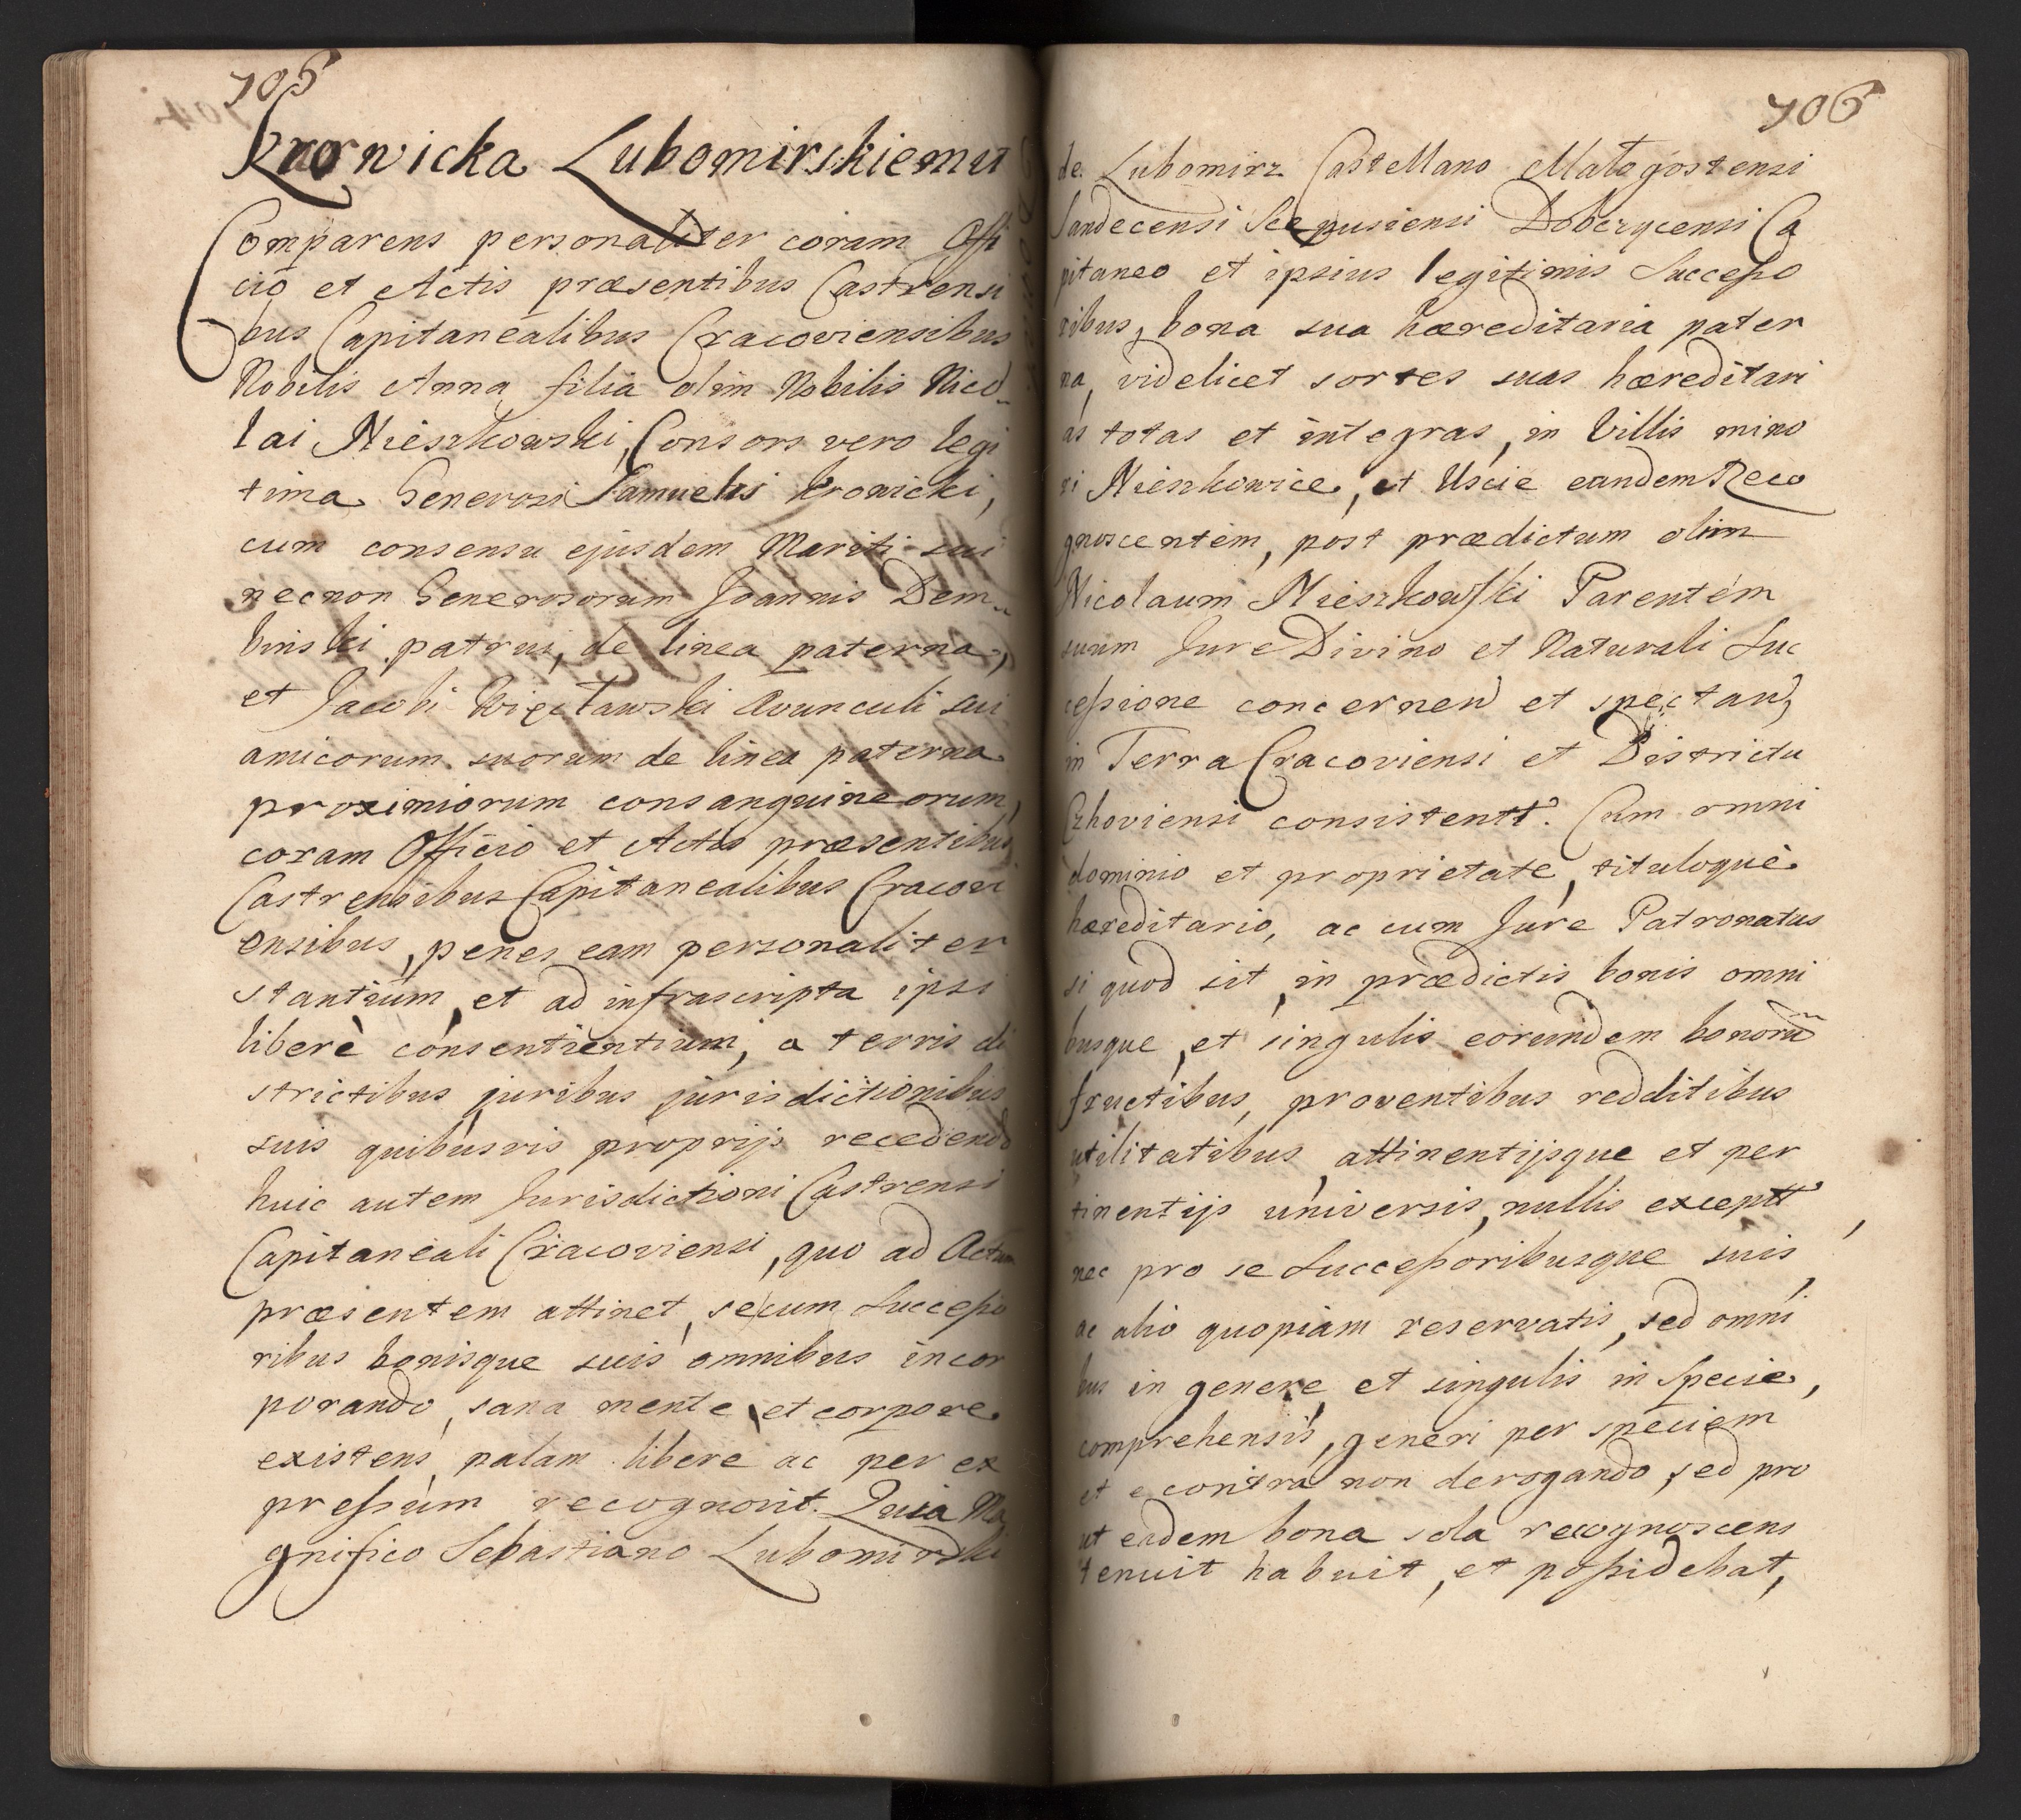 705
Krownicka Lubomirskiemu
Comparens personaliter coram Offi
cio et Actis præsentibus Castrensi
bus Capitanealibus Cracoviensibus
Nobilis Anna filia olim Nobilis Nico„
lai Nieszkowski, Consors vero legi
tima Generosi Samuelis Krowicki,
cum consensu ejusdem Mariti sui
necnon Generosorum Joannis Dem„
binski patrui, de linea paterna,
et Jacobi Avunculi sui
amicorum suorum de linea paterna
proximiorum consanguineorum,
coram Officio et Actis præsentibus
Castrensibus Capitanealibus Cracovi
ensibus, penes eam personaliter
stantium, et ad infrascripta ipsi
liberè consentientium, a terris di
strictibus juribus jurisdictionibus
suis quibusvis proprijs recedendo
huic autem Jurisdictioni Castrensi
Capitaneali Cracoviensi, quo ad Actum
præsentem attinet, secum Successo
ribus bonisque suis omnibus incor
porando, sana mente et corpore
existens, palam libere ac per ex
pressum recognovit. Quia Ma
gnifico Sebastiano Lubomirski
706
de Lubomirz Castellano Małogostensi
Sandecensi Scepusiensi Dobczycensi Ca
pitaneo et ipsius legitimis Successo
ribus, bona sua hæreditaria pater
na, videlicet sortes suas hæreditari
as totas et integras, in Villis mino
ri Nieszkowice, et Uscie eandem Reco
gnoscentem, post prædictum olim
Nicolaum Nieszkowski Parentem
suum Jure Divino et Naturali Suc
cessione concernen et spectan,
in Terra Cracoviensi et Districtu
Czhoviensi consistentt. Cum omni
dominio et proprietate, tituloque
hæreditario, ac cum Jure Patronatus
si quod sit, in prædictis bonis omni
busque, et singulis eorundem bonorũ
fructibus, proventibus redditibus
utilitatibus, attinentijsque et per
tinentijs universis, nullis exceptt,
nec pro se Successoribusque suis,
ac alio quopiam reservatis, sed omni
bus in genere et singulis in Specie,
comprehensis, generi per speciem
et e contra non derogando, sed pro
ut eadem bona sola recognoscens
tenuit habuit, et possidebat,